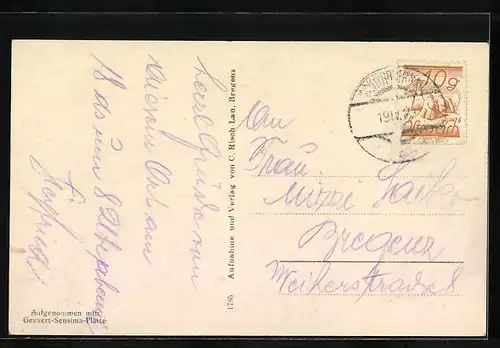 Herzl. Grüsse von
diesem Ort am
18 ds um 8 Uhr abends
Aufgenommen mit
Gevaert-Sensima-Platte
1785 Aufnahme und Verlag von C. Risch-Lau, Bregenz
An
Frau
Mizzi
Bregenz
Weiherstrasse 8
10 g
Österreich